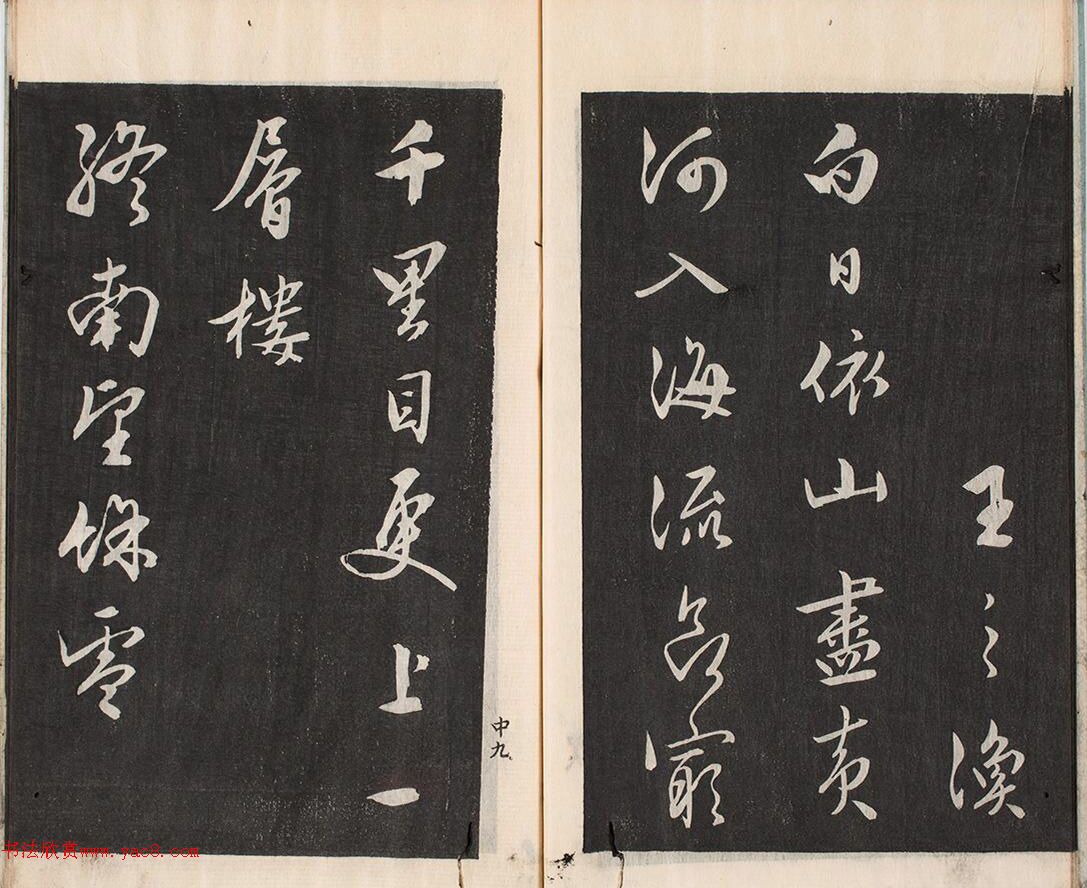 王之渙
白日依山盡黃
河入海流欲窮
千里目更上一
層樓
終南望餘雪
中九
书法欣赏www.yac8.com